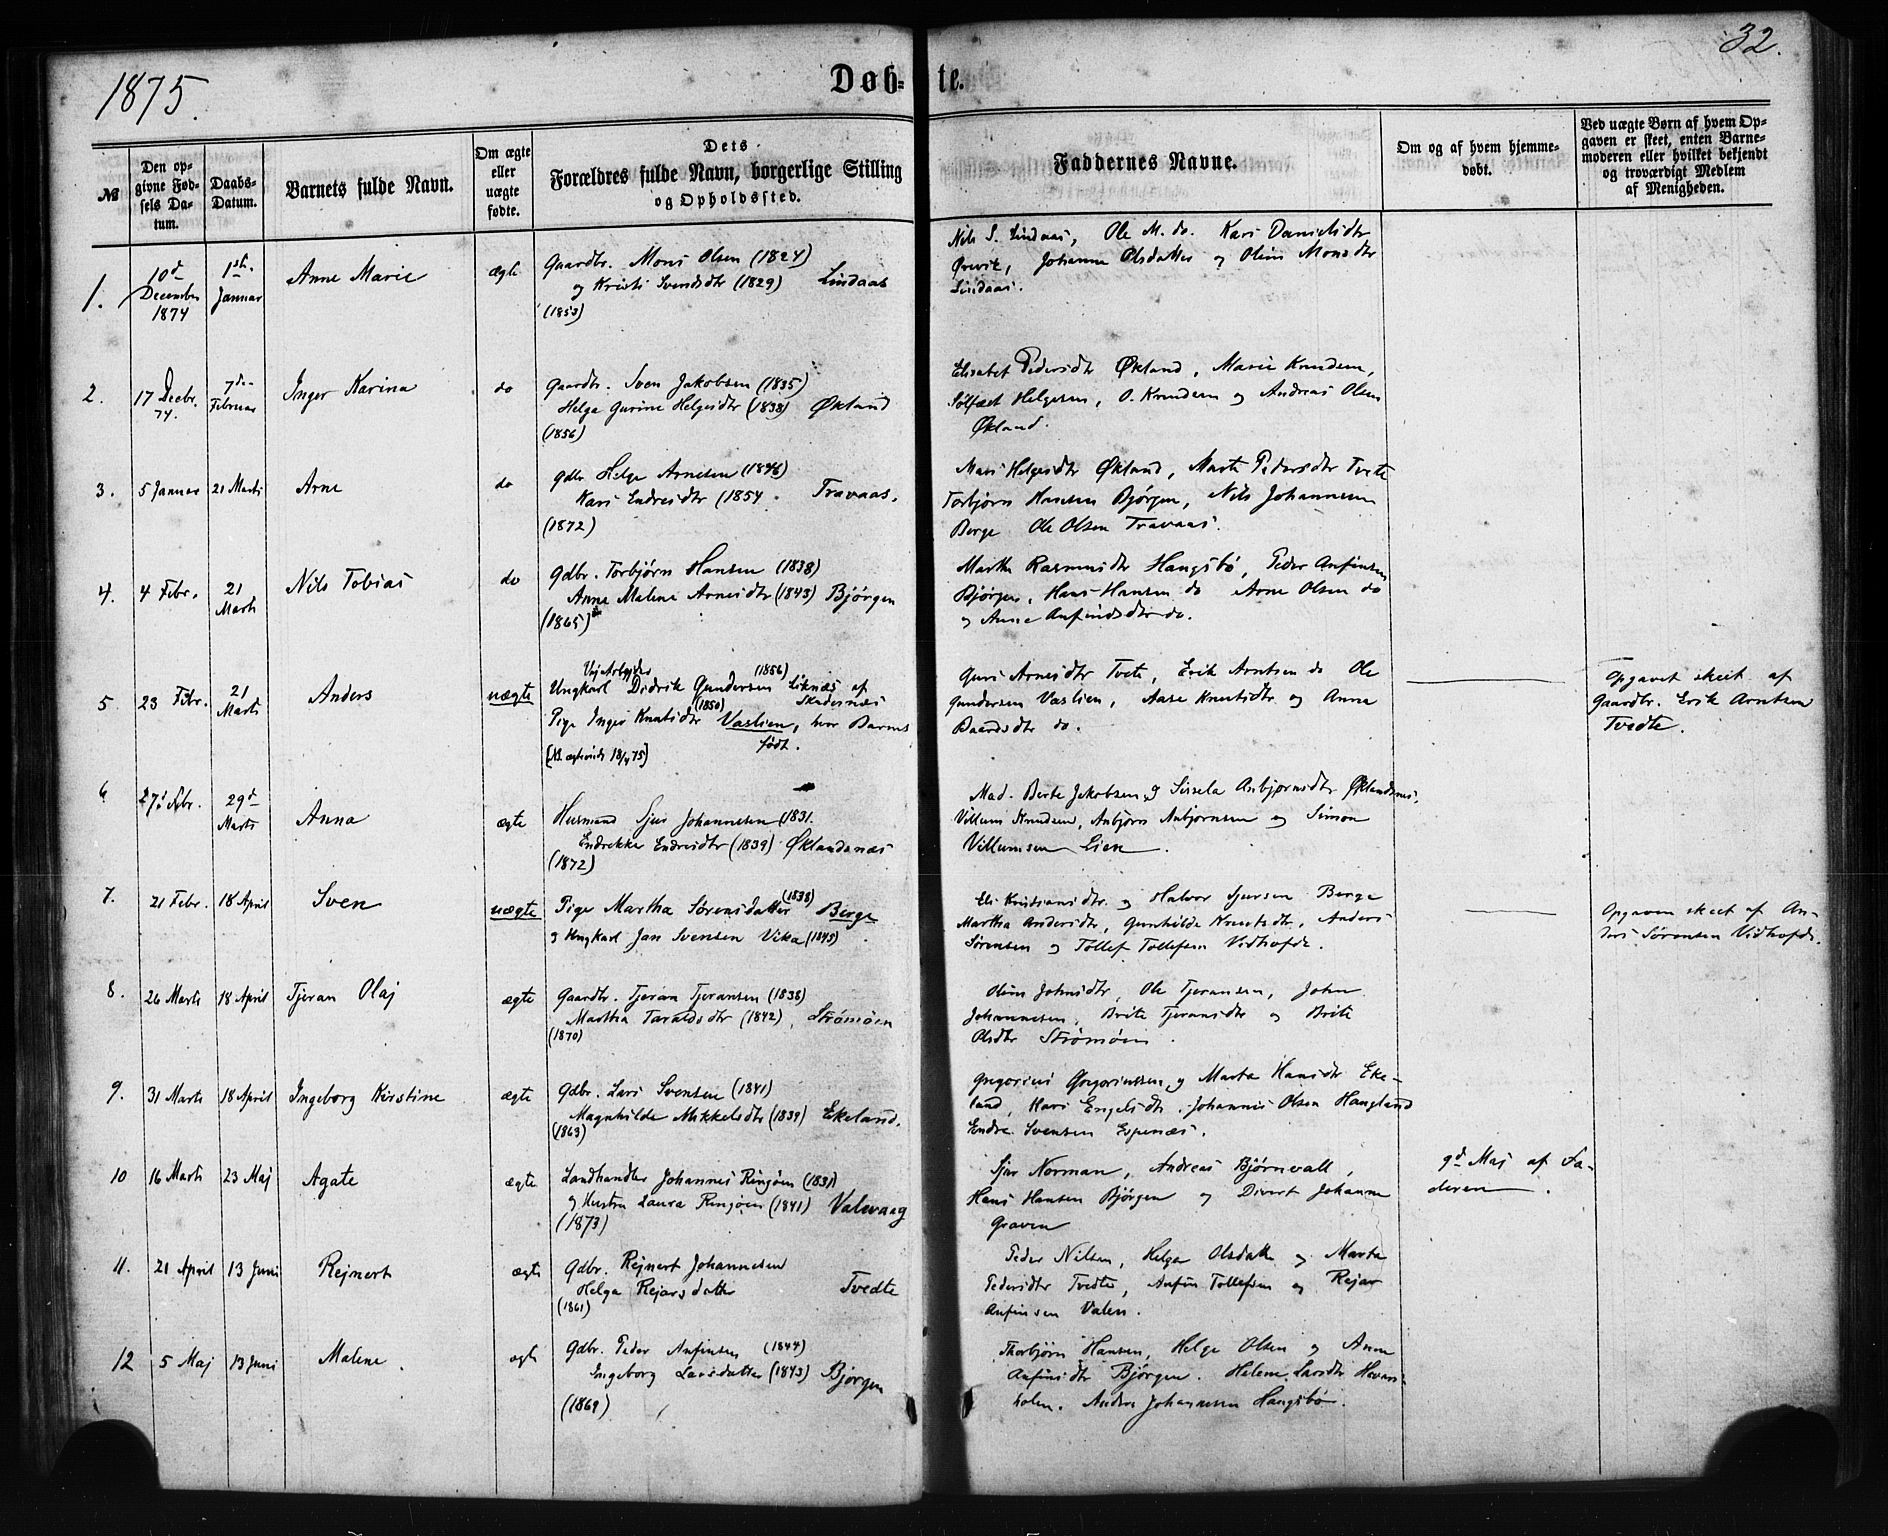 1875.
Døb-
te.
32.
№
Den op-
givne Fød-
sels Da-
tum.
Daabs-
Datum.
Barnets fulde Navn.
Om ægte
eller
uægte
fødte.
Dets
Forældres fulde Navn, borgerlige Stilling
og Opholdssted.
Faddernes Navne.
Om og af hvem hjemme-
døbt.
Ved uægte Børn af hvem Op-
gaven er skeet, enten Barne-
moderen eller hvilket bekjendt
og troværdigt Medlem
af Menigheden.
1.
10d
December
1874
1ste
Januar
Anne Marie
ægte
Gaardbr. Mons Olsen (1824)
og Kristi Svendsdtr (1829) Lindaas
(1853)
Nils S. Lindaas, Ole M. do. Kari Danielsdtr
Ørevik, Johanne Olsdatter og Oline Monsdtr
Lindaas.
2.
17 Decbr.
74.
7de
Februar
Inger Karina
do
Gaardbr. Sven Jakobsen (1835)
Helga Gurine Helgesdtr (1838) Økland
(1856)
Elisabet Pedersdtr Økland, Marie Knudsen,
Sølfæst Helgesen, O. Knudsen og Andreas Olsen
Økland.
3.
5 Januar
21 Marts
Arne
do
Gdbr Helge Arnesen (1846)
Kari Endresdtr (1854. Travaas.
(1872)
Mari Helgesdtr Økland, Marte Pedersdtr Tvete
Torbjørn Hansen Bjørgen, Nils Johannesen
Berge Ole Olsen Travaas.
4.
4 Febr.
21
Marts
Nils Tobias
do
Gdbr. Torbjørn Hansen (1838)
Anne Malene Arnesdtr (1843) Bjørgen
(1865)
Martha Rasmusdtr Haugsbø, Peder Anfinsen
Bjørgen, Hans Hansen do Arne Olsen do
og Anne Anfindsdtr do.
5
23 Febr.
21
Marts
Anders
uægte
Vejarbejder (1856)
Ungkarl Didrik Gundersen Liknæs af
(1850) Skudesnæs
Pige Inger Knutsdtr Vaslien, hvor Barnet
født.
Guri Arnesdtr Tvete, Erik Arntsen do Ole
Gundersen Vaslien, Aase Knutsdtr og Anna
Baardsdtr do.
Opgavet skeet af
Gaardbr. Erik Arntsen
Tvedte.
6
27de Febr.
29d
Marts
Anna
ægte
Husmand Sjur Johannesen (1831.
Endrekka Endresdtr (1839) Øklandsnæs
(1872)
Mad. Berte Jakobsen og Sissela Anbjørnsdtr Øklandsnæs,
Villum Knudsen, Anbjørn Anbjørnsen og Simon
Villumsen Lien.
7.
21 Febr.
18 April
Sven
uægte
Pige Martha Sørensdatter (1838) Berge
og Ungkarl Jan Svensen Vika (1845)
Eli Kristiansdtr. og Halvor Sjursen Berge
Martha Andersdtr, Gunhilde Knutsdtr, Anders
Sørensen og Tollef Tollefsen Vidhofde.
Opgaven skeet af An-
ders Sørensen Vidhofde.
8.
26 Marts
18 April
Tjeran Olaj
ægte
Gaardbr. Tjeran Tjeransen (1838)
Martha Taraldsdtr (1842), Strømøen
(1870)
Oline Johnsdtr, Ole Tjeransen, John
Johannesen, Brite Tjeransdtr og Brite
Olsdtr Strømøen.
9.
31 Marts
18 April
Ingeborg Kirstine
ægte
Gdbr. Lars Svensen (1841)
Magnhilde Mikkelsdtr (1839) Ekeland.
(1863)
Gregorius Gregoriussen og Marta Hansdtr Eke-
land, Kari Engelsdtr. Johannes Olsen Haugland
Endre Svensen Espenæs.
10
16 Marts
23 Maj
Agate
ægte
Landhandler Johannes Ringøen (1831)
og Hustru Laura Ringøen (1841) Valevaag
(1873)
Sjur Norman, Andreas Bjørnevall,
Hans Hansen Bjørgen og Divert Johanne
Graven
9d Maj af Fa-
deren.
11.
21 April
13 Juni
Rejnert
ægte
Gdbr. Rejnert Johannesen
Helga Rejarsdatter Tvedte
(1861)
Peder Nilsen, Helga Olsdatter og Marta
Pedersdtr Tvedte, Anfin Tollefsen og Rejar
Anfinsen Valen.
12
5 Maj
13 Juni
Malene.
ægte
Gdbr. Peder Anfinsen (1844)
Ingeborg Larsdatter (1843) Bjørgen
(1869)
Thorbjørn Hansen, Helge Olsen og Anne
Anfinsdtr Bjørgen. Helene Larsdtr
Anders Johannesen Haugsbø.